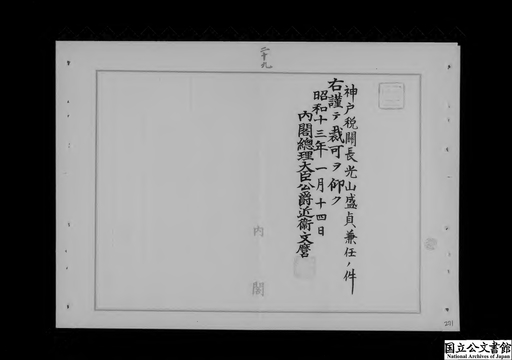 二十九
神戸税關長光山盛貞兼任ノ件
右謹テ裁可ヲ仰ク
昭和十三年一月十四日
內閣總理大臣公爵近衞文麿
內閣
国立公文書館
National Archives of Japan